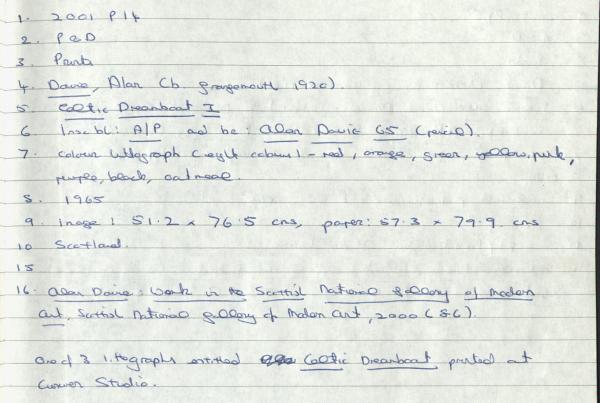 1. 2001 P 14
2. P&D
3. Prints
4. Davie, Alan (b. Grangemouth 1920).
5 Celtic Dreamboat I
6 Inscbl: A/P and br: Alan Davie 65 (pencil).
7. Colour lithograph (eight colours) - red, orange, green, yellow, pink,
purple, black, oatmeal.
8. 1965
9. image: 51.2 x 76.5 cms, paper: 57.3 x 79.9 cms
10 Scotland.
15
16. Alan Davie: Work in the Scottish National Gallery of Modern
Art, Scottish National Gallery of Modern Art, 2000 (86).
One of 3 lithographs entitled Celtic Dreamboat printed at
Curwen Studio.